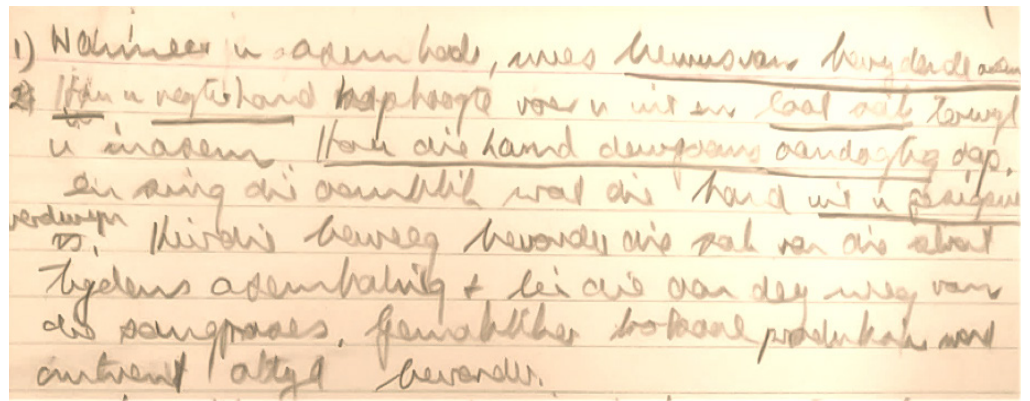 1) Wanneer u asem haal, wees bewus van bevryde asem
2) Hou u regterhand kophoogte voor u uit en laat sak terwyl
u inasem. Hou die hand deurgaans aandagtig dop,
en sing die oomblik wat die hand uit u gesigsveld
verdwyn
is. Hierdie beweeg bevorder die sak van die
tydens asemhaling + lei die aandag weg van
die sangproses. Gemaklike vokale produksie word
omtrent altyd bevorder.